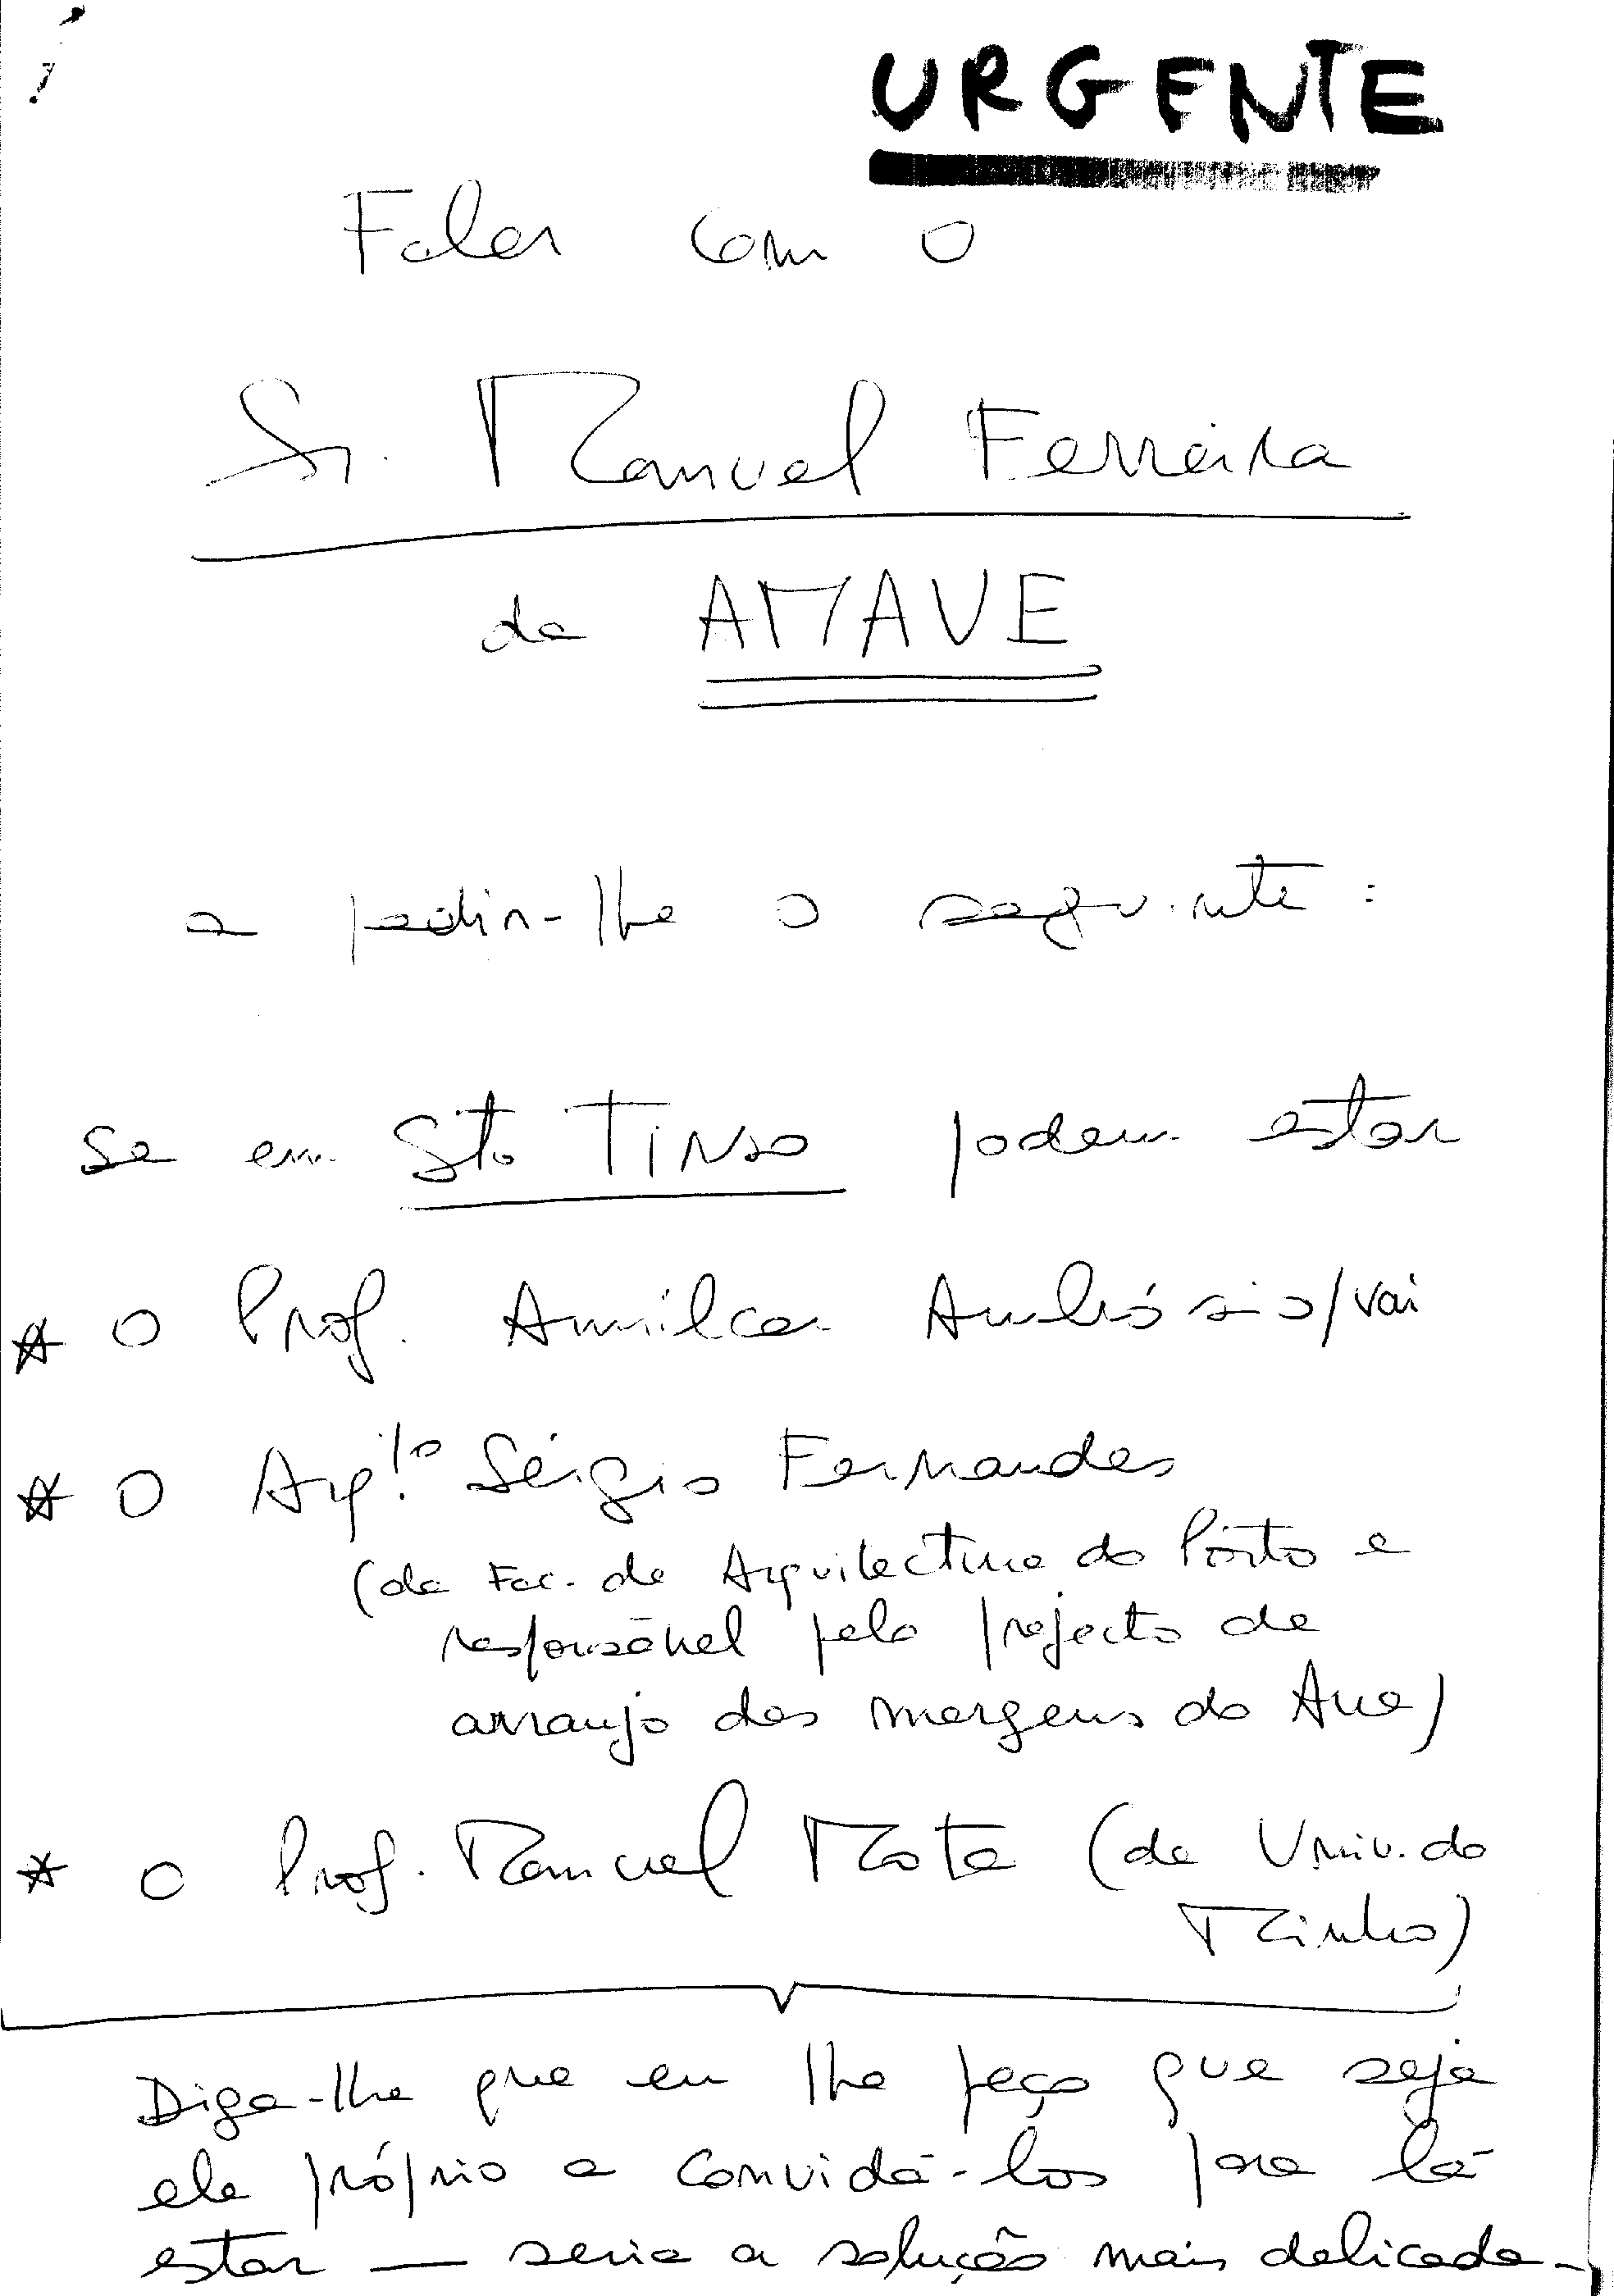 URGENTE
Falar com o
Sr. Manuel Ferreira
da AMAVE
a pedir-lhe o seguinte:
se em Sto Tirso podem estar
* O Prof. Amílcar Ambrósio/vai
* O Arq.to Sérgio Fernandes
(da Fac. de Arquitectura do Porto e
responsável pelo projecto de
arranjo das margens do Ave)
* O Prof. Manuel Mota (da Univ. do
Minho)
Diga-lhe que eu lhe peço que seja
ele próprio a convidá-los para lá
estar — seria a solução mais delicada.